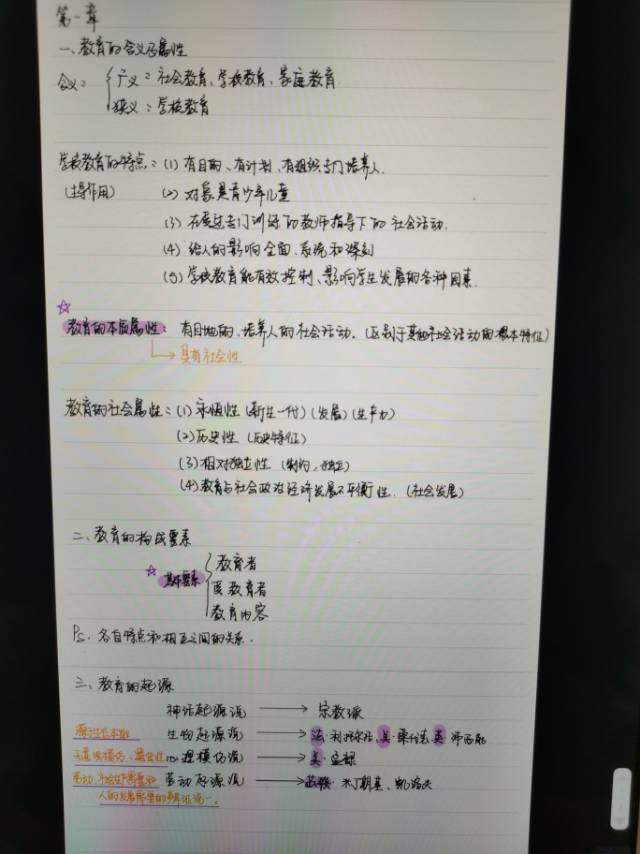 第一章
一、教育的含义及属性
含义： 广义：社会教育、学校教育、家庭教育.
狭义：学校教育
学校教育的特点：(1) 有目的、有计划、有组织专门培养人.
(主导作用) (2) 对象是青少年儿童
(3) 在受过专门训练的教师指导下的社会活动.
(4) 给人的影响全面、系统和深刻
(5) 学校教育能有效控制、影响学生发展的各种因素.
教育的本质属性： 有目地的、培养人的社会活动.（区别于其他社会活动的根本特征）
具有社会性
教育的社会属性：(1) 永恒性（新生一代）（发展）（生产力）
(2) 历史性（历史特征）
(3) 相对独立性（制约，独立）
(4) 教育与社会政治经济发展不平衡性.（社会发展）
二、教育的构成要素
基本要素 教育者
教育者
教育内容
Ps. 各自特点和相互之间的关系.
三、教育的起源
神话起源说 → 宗教派
生物起源说 → 法·利托尔诺、美·桑代克、英·沛西能
心理模仿说 → 美·孟禄
劳动起源说 → 米丁斯基、凯洛夫